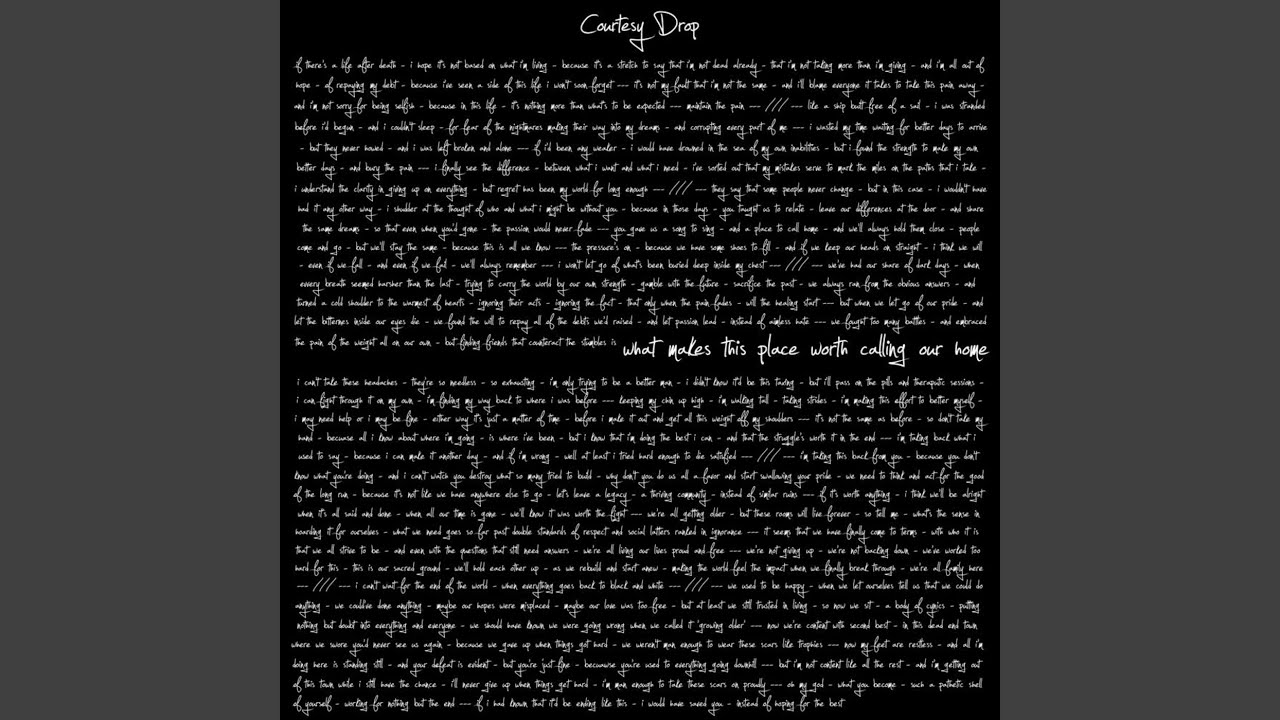 Courtesy Drop
if there's a life after death - i hope it's not based on what i'm living - because it's a stretch to say that i'm not dead already - that i'm not taking more than i'm giving - and i'm all out of
hope - of repaying my debt - because i've seen a side of this life i won't soon forget --- it's not my fault that i'm not the same - and i'll blame everyone it takes to take this pain away -
and i'm not sorry for being selfish - because in this life - it's nothing more than what's to be expected --- maintain the pain --- //// --- like a ship built free of a sail - i was stranded
before i'd begun - and i couldn't sleep - for fear of the nightmares making their way into my dreams - and corrupting every part of me --- i wasted my time waiting for better days to arrive
- but they never showed - and i was left broken and alone --- if i'd been any weaker - i would have drowned in the sea of my own inabilities - but i found the strength to make my own
better days - and bury the pain --- i finally see the difference - between what i want and what i need - i've sorted out that my mistakes serve to mark the miles on the paths that i take -
i understand the clarity in giving up on everything - but regret has been my world for long enough --- //// --- they say that some people never change - but in this case - i wouldn't have
had it any other way - i shudder at the thought of who and what i might be without you - because in those days - you taught us to relate - leave our differences at the door - and share
the same dreams - so that even when you'd gone - the passion would never fade --- you gave us a song to sing - and a place to call home - and we'll always hold them close - people
come and go - but we'll stay the same - because this is all we know --- the pressure's on - because we have some shoes to fill - and if we keep our heads on straight - i think we will
- even if we fall - and even if we fail - we'll always remember --- i won't let go of what's been buried deep inside my chest --- //// --- we've had our share of dark days - when
every breath seemed harsher than the last - trying to carry the world by our own strength - gamble with the future - sacrifice the past - we always ran from the obvious answers - and
turned a cold shoulder to the warmest of hearts - ignoring their acts - ignoring the fact - that only when the pain fades - will the healing start --- but when we let go of our pride - and
let the bitternes inside our eyes die - we found the will to repay all of the debts we'd raised - and let passion lead - instead of aimless hate --- we fought too many battles - and embraced
the pain of the weight all on our own - but finding friends that counteract the stumbles is what makes this place worth calling our home
i can't take these headaches - they're so needless - so exhausting - i'm only trying to be a better man - i didn't know it'd be this taxing - but i'll pass on the pills and theraputic sessions -
i can fight through it on my own - i'm finding my way back to where i was before --- keeping my chin up high - i'm walking tall - taking strides - i'm making this effort to better myself -
i may need help or i may be fine - either way it's just a matter of time - before i make it out and get all this weight off my shoulders --- it's not the same as before - so don't take my
hand - becuase all i know about where i'm going - is where i've been - but i know that i'm doing the best i can - and that the struggle's worth it in the end --- i'm taking back what i
used to say - because i can make it another day - and if i'm wrong - well at least i tried hard enough to die satisfied --- //// --- i'm taking this back from you - because you don't
know what you're doing - and i can't watch you destroy what so many tried to build - why don't you do us all a favor and start swallowing your pride - we need to think and act for the good
of the long run - because it's not like we have anywhere else to go - let's leave a legacy - a thriving community - instead of similar ruins --- if it's worth anything - i think we'll be alright
when it's all said and done - when all our time is gone - we'll know it was worth the fight --- we're all getting older - but these rooms will live forever - so tell me - what's the sense in
hoarding it for ourselves - what we need goes so far past double standards of respect and social latters ranked in ignorance --- it seems that we have finally come to terms - with who it is
that we all strive to be - and even with the questions that still need answers - we're all living our lives proud and free --- we're not giving up - we're not backing down - we've worked too
hard for this - this is our sacred ground - we'll hold each other up - as we rebuild and start anew - making the world feel the impact when we finally break through - we're all family here
--- //// --- i can't wait for the end of the world - when everything goes back to black and white --- //// --- we used to be happy - when we let ourselves tell us that we could do
anything - we could've done anything - maybe our hopes were misplaced - maybe our love was too free - but at least we still trusted in living - so now we sit - a body of cynics - putting
nothing but doubt into everything and everyone - we should have known we were going wrong when we called it 'growing older' --- now we're content with second best - in this dead end town
where we swore you'd never see us again - because we gave up when things got hard - we weren't man enough to wear these scars like trophies --- now my feet are restless - and all i'm
doing here is standing still - and your defeat is evident - but you're 'just fine' - becuause you're used to everything going downhill --- but i'm not content like all the rest - and i'm getting out
of this town while i still have the chance - i'll never give up when things get hard - i'm man enough to take these scars on proudly --- oh my god - what you become - such a pathetic shell
of yourself - working for nothing but the end --- if i had known that it'd be ending like this - i would have saved you - instead of hoping for the best